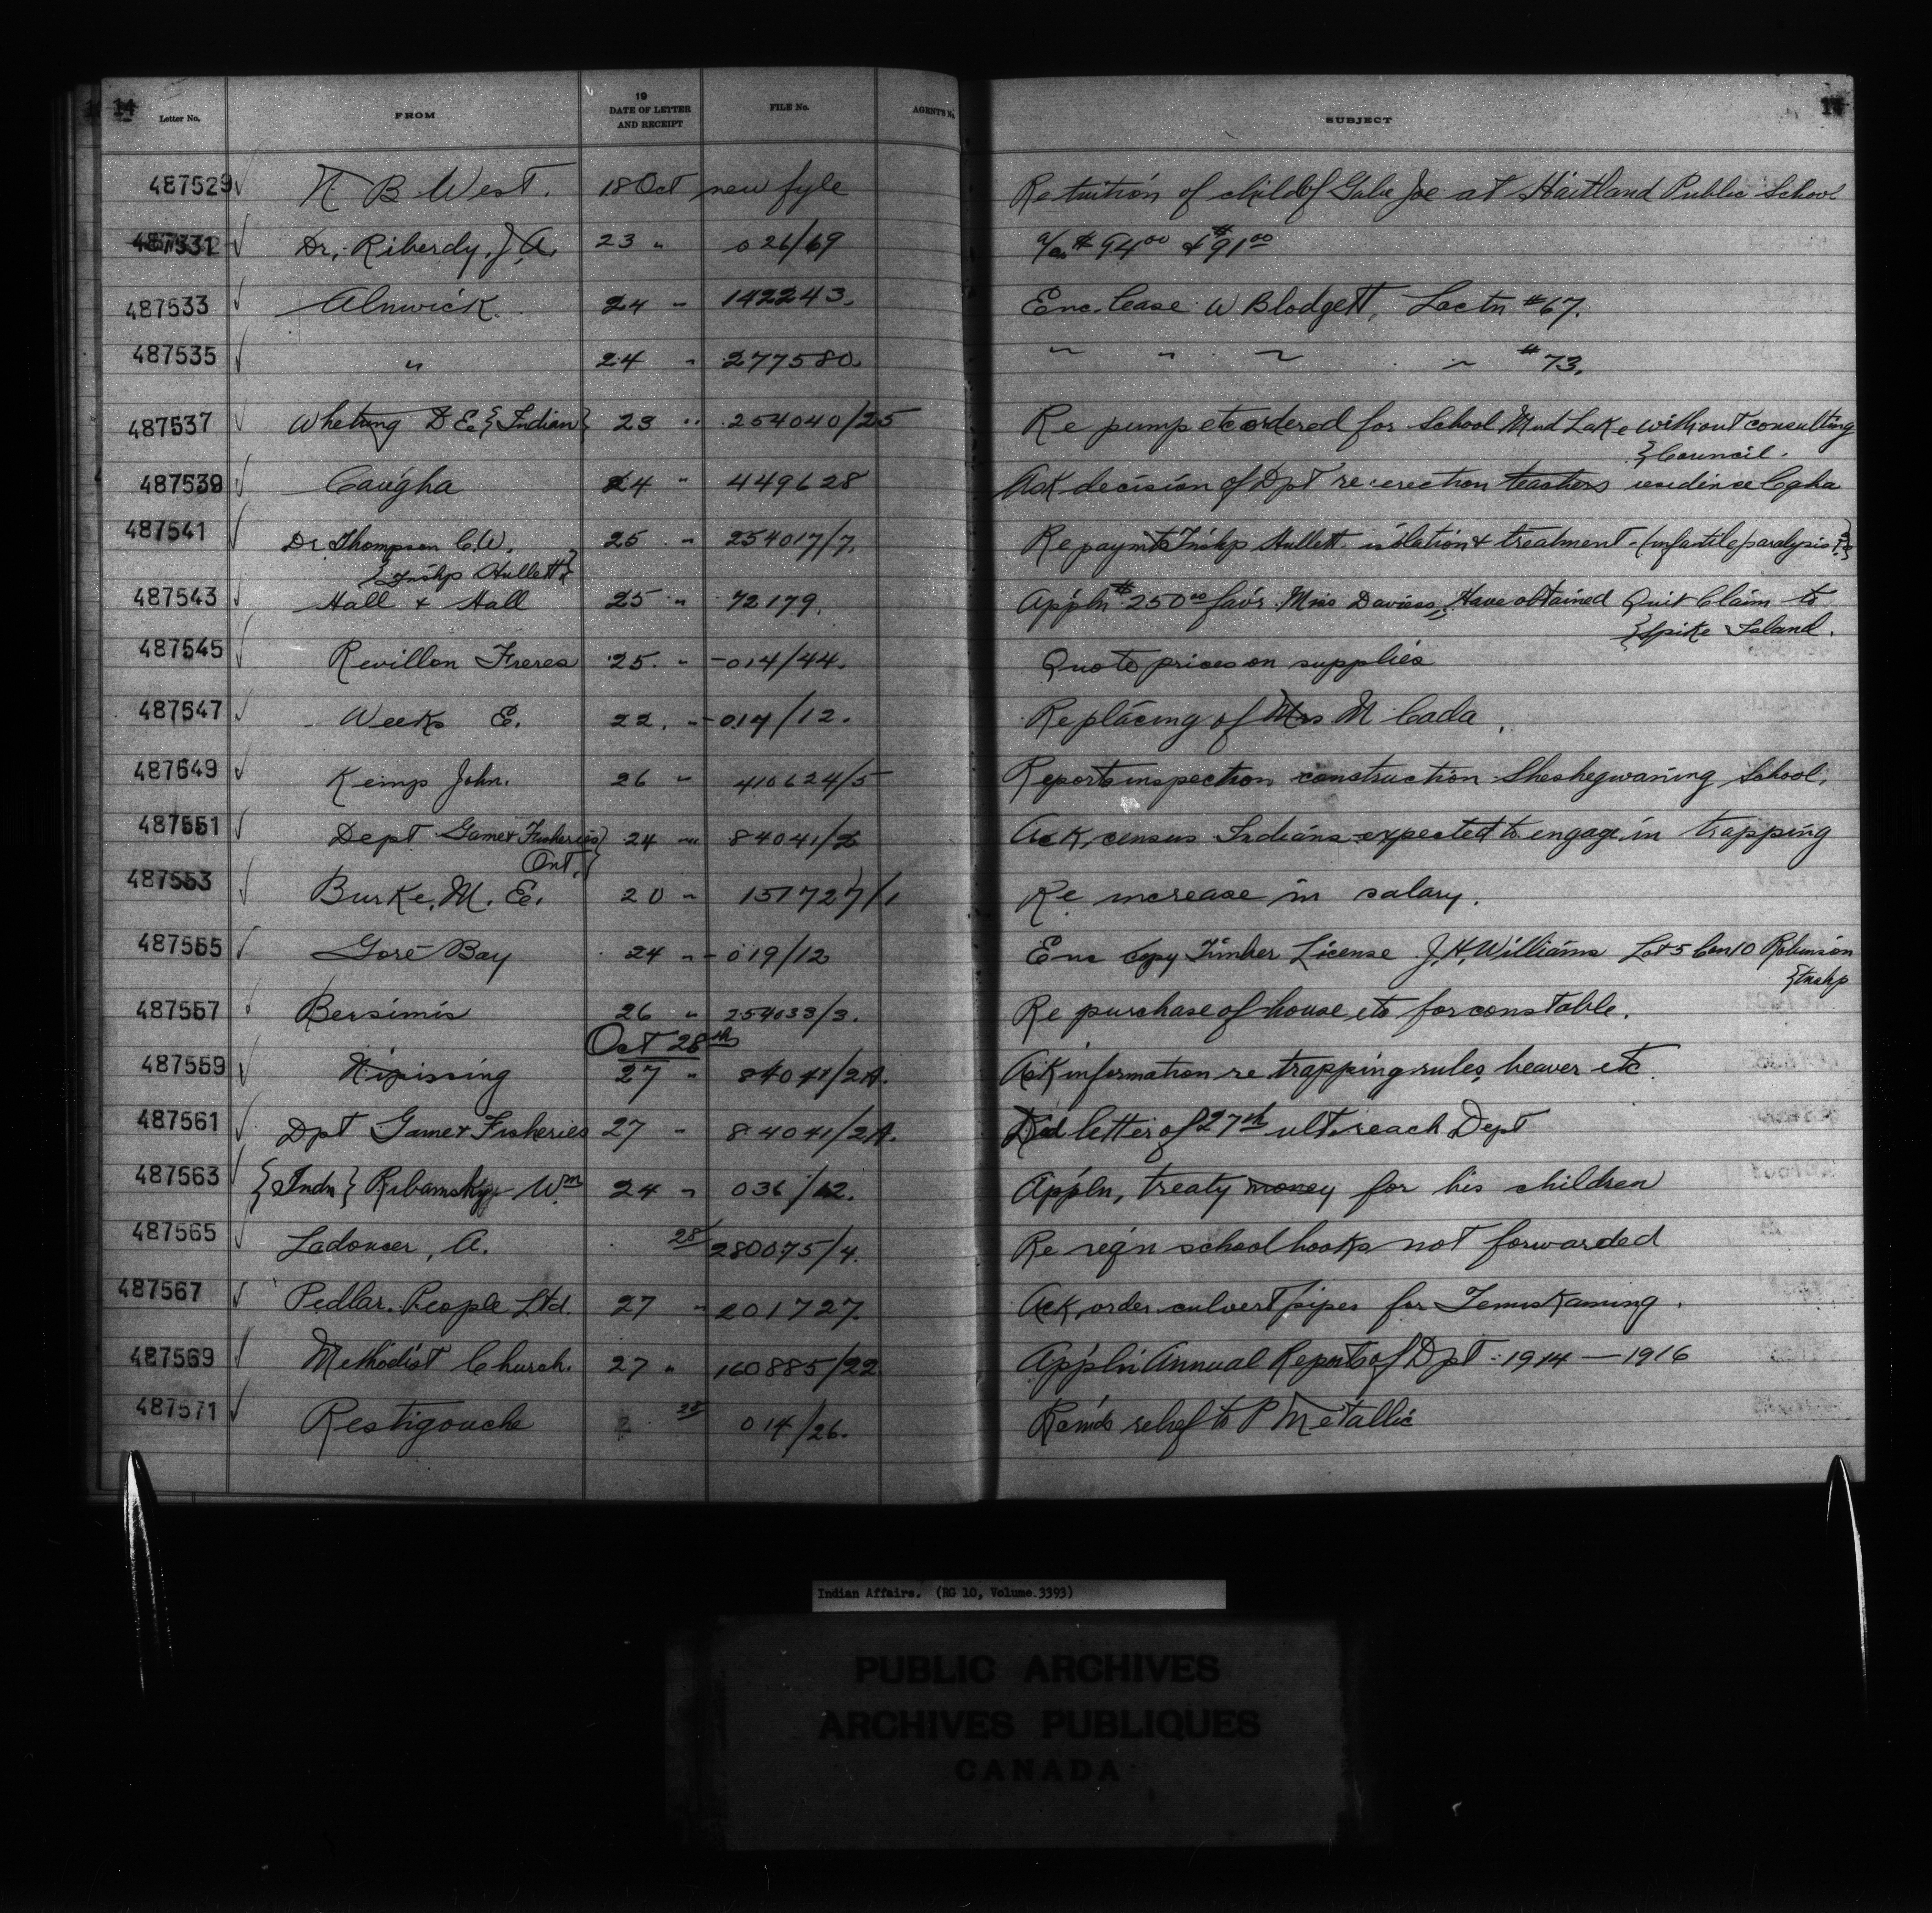 14
Letter No. FROM 19 DATE OF LETTER AND RECEIPT FILE No. AGENT'S No. SUBJECT
487529 N B West. 18 Oct new fyle Re tuition of child of Gabe Joe at Hartland Public School
487531 Dr. Riberdy, J. A. 23 " 026/69 a/cs $94.00 & $91.00
487533 Alnwick. 24 " 142243. Enc. lease W Blodgett, Loctn #67.
487535 " 24 " 277580. " " " " #73.
487537 Whetung D E. {Indian} 23 " 254040/25 Re pump etc ordered for School Mud Lake without consulting
{Council.
487539 Caugha 24 " 449628 Ack decision of Dpt re erection teachers residence Cgha
487541 Dr Thompson C.W. 25 " 254017/7. Re paymt Tnshp Hullett isolation & treatment (infantile paralysis)
{Tnshp Hullett}
487543 Hall & Hall 25 " 72179. Appln $250.00 favr. Miss Davies; Have obtained Quit Claim to
{Spike Island.
487545 Revillon Freres 25. " 014/44. Quote prices on supplies
487547 Weeks E. 22. " 014/12. Re placing of Mrs M Cada.
487549 Kemp John. 26 " 410624/5 Reports inspection construction Sheshegwaning School.
487551 Dept Game & Fisheries} 24 " 84041/2 Ack, census Indians expected to engage in trapping
Ont.}
487553 Burke, M. E. 20 " 151727/1 Re increase in salary.
487555 Gore Bay 24 " 019/12 Enc copy Timber License J. H. Williams Lot 5 Con 10 Robinson
{tnshp
487557 Bersimis 26 " 254033/3. Re purchase of house etc for constable.
Oct 28th
487559 Nipissing 27 " 84041/2A. Ack information re trapping rules, beaver etc.
487561 Dpt Game & Fisheries 27 " 84041/2A. Did letter of 27th ult. reach Dept
487563 {Indn} Wm 24 " 036/12. Appln, treaty money for his children
487565 Ladoucer, A. 28 280075/4. Re reqn school books not forwarded
487567 Pedlar People Ltd. 27 " 201727. Ack order culvert pipes for Temiskaming.
487569 Methodist Church. 27 " 160885/22 Appln Annual Reports of Dpt 1914 — 1916
487571 Restigouche 28 014/26. relief to P Metallic
Indian Affairs. (RG 10, Volume.3393)
PUBLIC ARCHIVES
ARCHIVES PUBLIQUES
CANADA